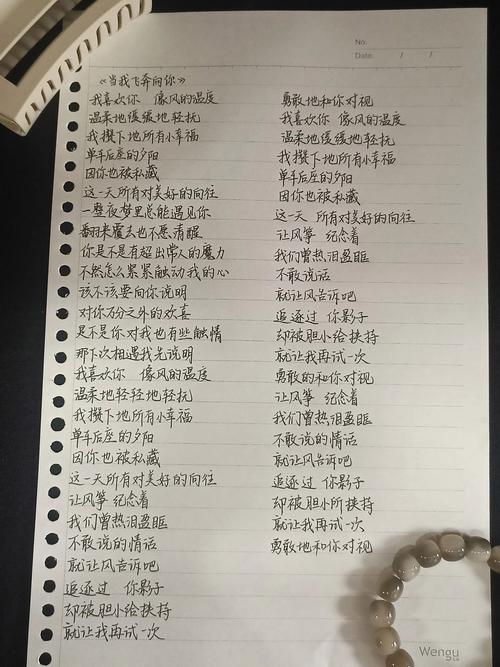 No.
Date: / /
《当我飞奔向你》
我喜欢你 像风的温度
温柔地缓缓地轻抚
我攥下地所有小幸福
单车后座的夕阳
因你也被私藏
这一天所有对美好的向往
一整夜梦里总能遇见你
翻来覆去也不愿清醒
你是不是有超出常人的魔力
不然怎么紧紧触动我的心
该不该要向你说明
对你万分之外的欢喜
是不是你对我也有些触情
那下次相遇我先说明
我喜欢你 像风的温度
温柔地轻轻地轻抚
我攥下地所有小幸福
单车后座的夕阳
因你也被私藏
这一天所有对美好的向往
让风筝 纪念着
我们曾热泪盈眶
不敢说的情话
就让风告诉吧
追逐过 你影子
却被胆小给挟持
就让我再试一次
勇敢地和你对视
我喜欢你 像风的温度
温柔地缓缓地轻抚
我攥下地所有小幸福
单车后座的夕阳
因你也被私藏
这一天 所有对美好的向往
让风筝 纪念着
我们曾热泪盈眶
不敢说话
就让风告诉吧
追逐过 你影子
却被胆小给挟持
就让我再试一次
勇敢的和你对视
让风筝 纪念着
我们曾热泪盈眶
不敢说的情话
就让风告诉吧
追逐过 你影子
却被胆小所挟持
就让我再试一次
勇敢地和你对视
Wengu